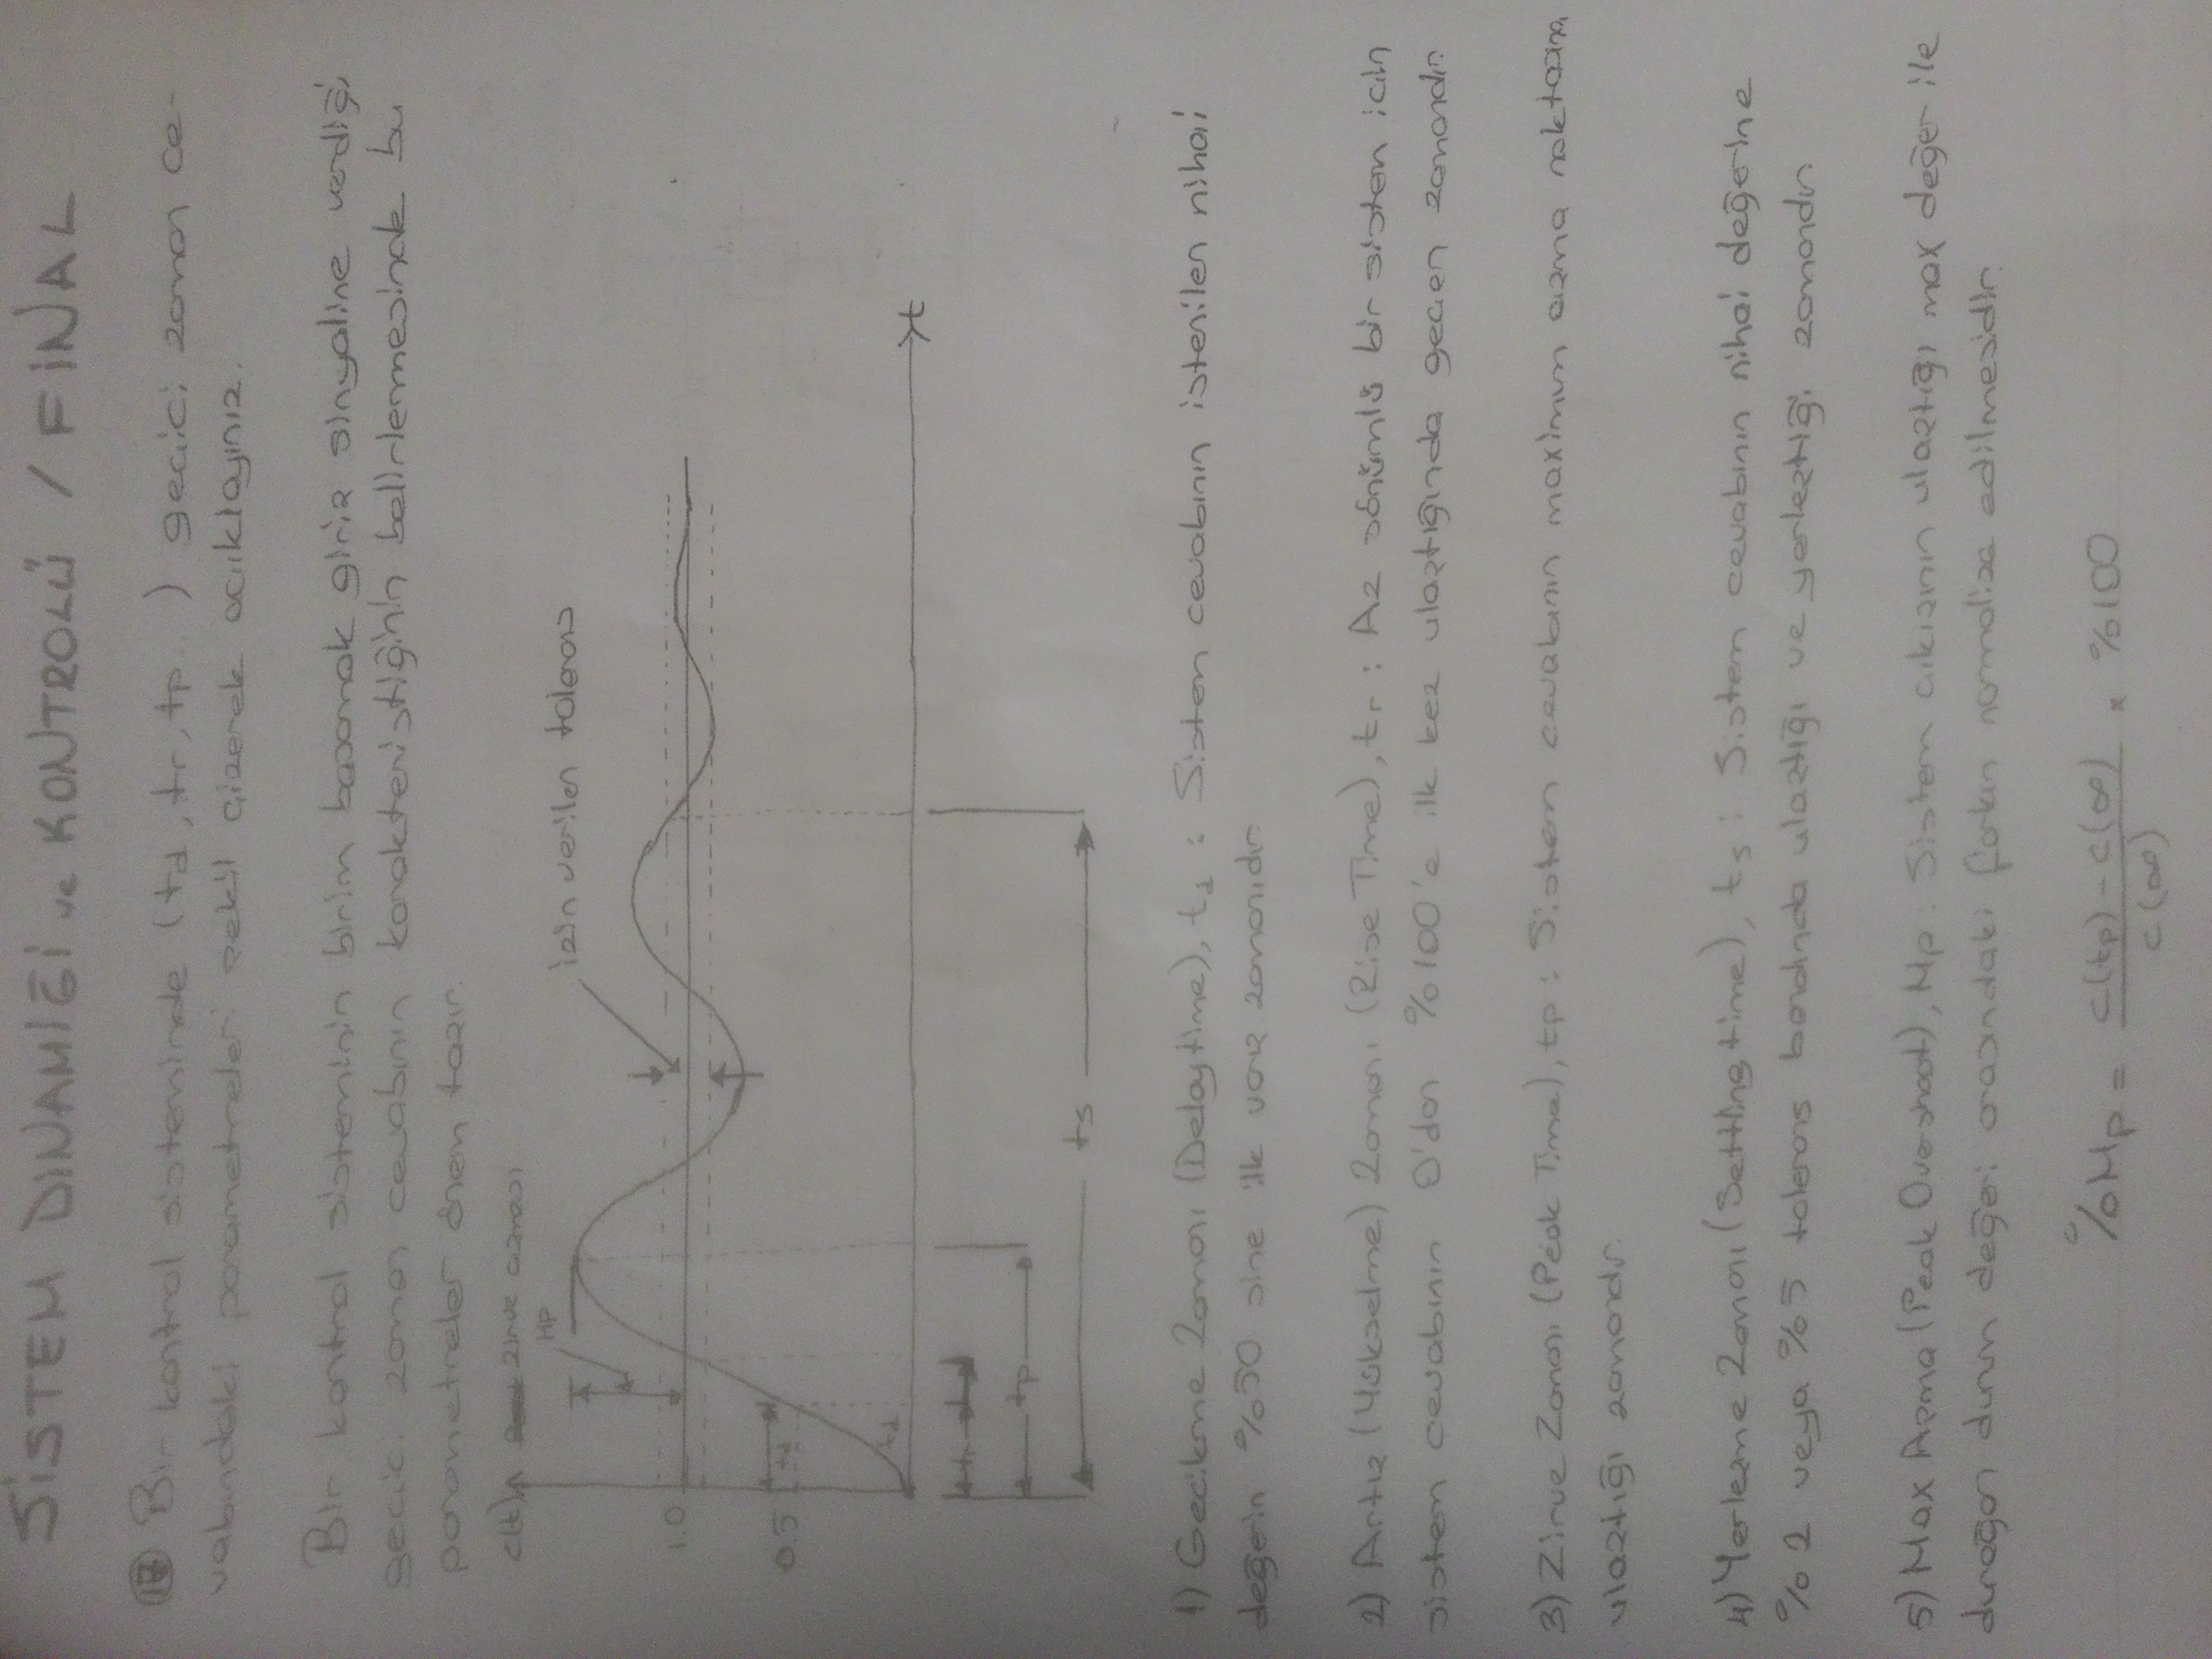 SİSTEM DİNAMİĞİ ve KONTROLÜ / FİNAL
Bir kontrol sisteminde (td, tr, tp...) geçici zaman ce-
vabındaki parametreleri şekil çizerek açıklayınız.
Bir kontrol sisteminin birim basamak giriş sinyaline verdiği
geçici zaman cevabının karakteristiğinin belirlenmesinde bu
parametreler önem taşır.
c(t) zirve aşması
Mp
izin verilen tolerans
1.0
0.5
td
td
t
tr
tp
ts
1) Gecikme Zamanı (Delay time), td : Sistem cevabının istenilen nihai
değerin %50 sine ilk varış zamanıdır.
2) Artış (Yükselme) Zamanı (Rise Time), tr : Az sönümlü bir sistem için
sistem cevabının 0'dan %100'e ilk kez ulaştığında geçen zamandır.
3) Zirve Zamanı (Peak Time), tp : Sistem cevabının maximum aşma noktasına
ulaştığı zamandır.
4) Yerleşme Zamanı (Settling time), ts : Sistem cevabının nihai değerine
%2 veya %5 tolerans bandında ulaştığı ve yerleştiği zamandır.
5) Max Aşma (Peak Overshoot), Mp : Sistem çıkışının ulaştığı max değer ile
durağan durum değeri arasındaki farkın normalize edilmesidir.
%Mp = c(tp) - c(∞) / c(∞) x %100